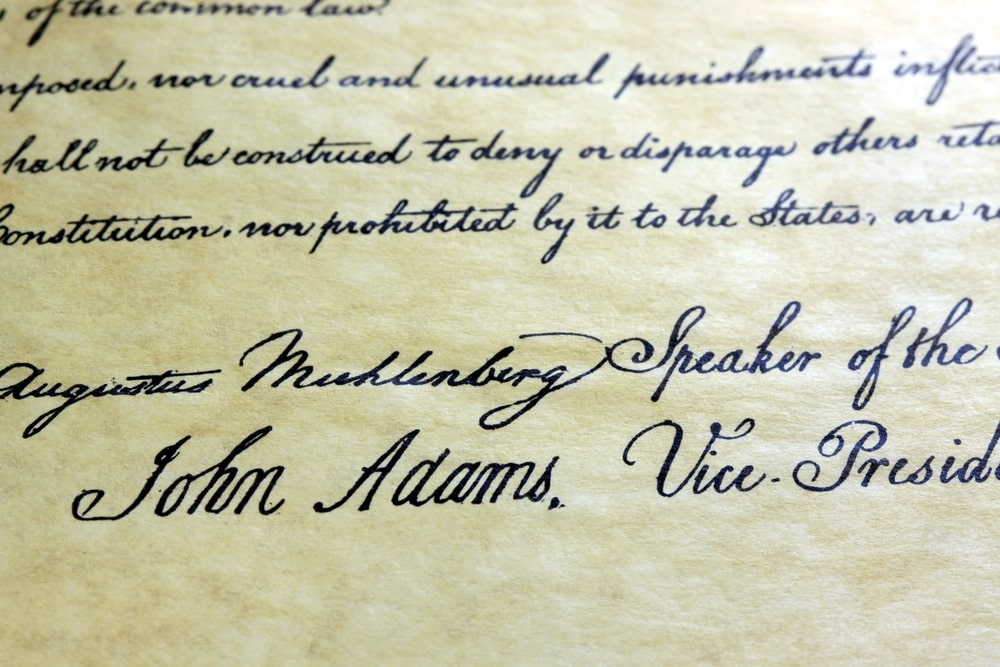 of the common law.
mposed, nor cruel and unusual punishments inflic
hall not be construed to deny or disparage others reta
Constitution, nor prohibited by it to the States, are r
Augustus Muhlenberg Speaker of the
John Adams, Vice-Presid